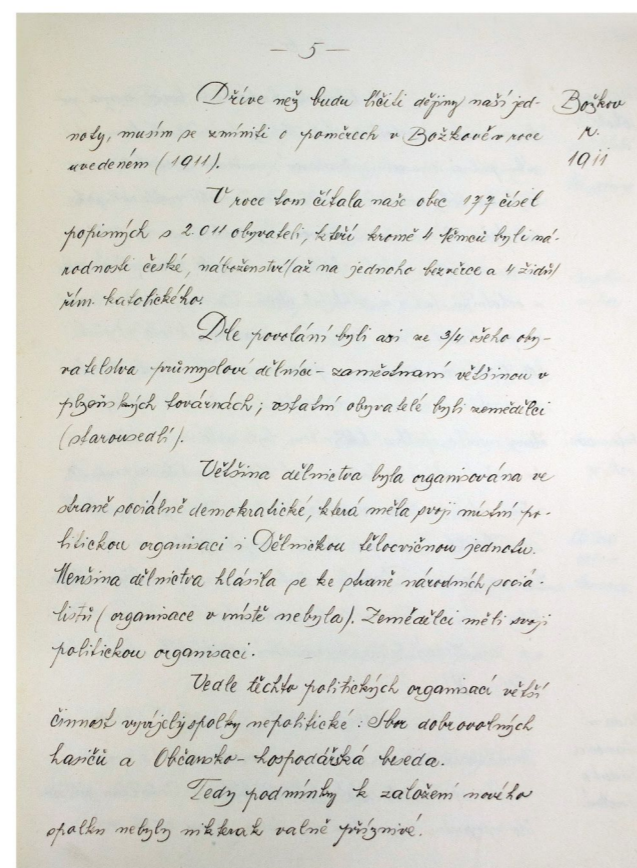 — 5 —
Dříve než budu líčiti dějiny naší jed- Božkov
noty, musím se zmíniti o poměrech v Božkově v roce r.
uvedeném (1911). 1911
V roce tom čítala naše obec 177 čísel
popisných s 2.011 obyvateli, kteří kromě 4 němců byli ná-
rodnosti české, náboženství/až na jednoho bezvěrce a 4 židů/
řím. katolického.
Dle povolání byli asi ze 3/4 všeho oby-
vatelstva průmysloví dělníci - zaměstnaní většinou v
plzeňských továrnách; ostatní obyvatelé byli zemědělci
(starousedlí).
Většina dělnictva byla organisována ve
straně sociálně demokratické, která měla svoji místní po-
litickou organisaci i Dělnickou tělocvičnou jednotu.
Menšina dělnictva hlásila se ke straně národních sociá-
listů (organisace v místě nebyla). Zemědělci měli svoji
politickou organisaci.
Vedle těchto politických organisací větší
činnost vyvíjely spolky nepolitické: Sbor dobrovolných
hasičů a Občansko-hospodářská beseda.
Tedy podmínky k založení nového
spolku nebyly nikterak valně příznivé.